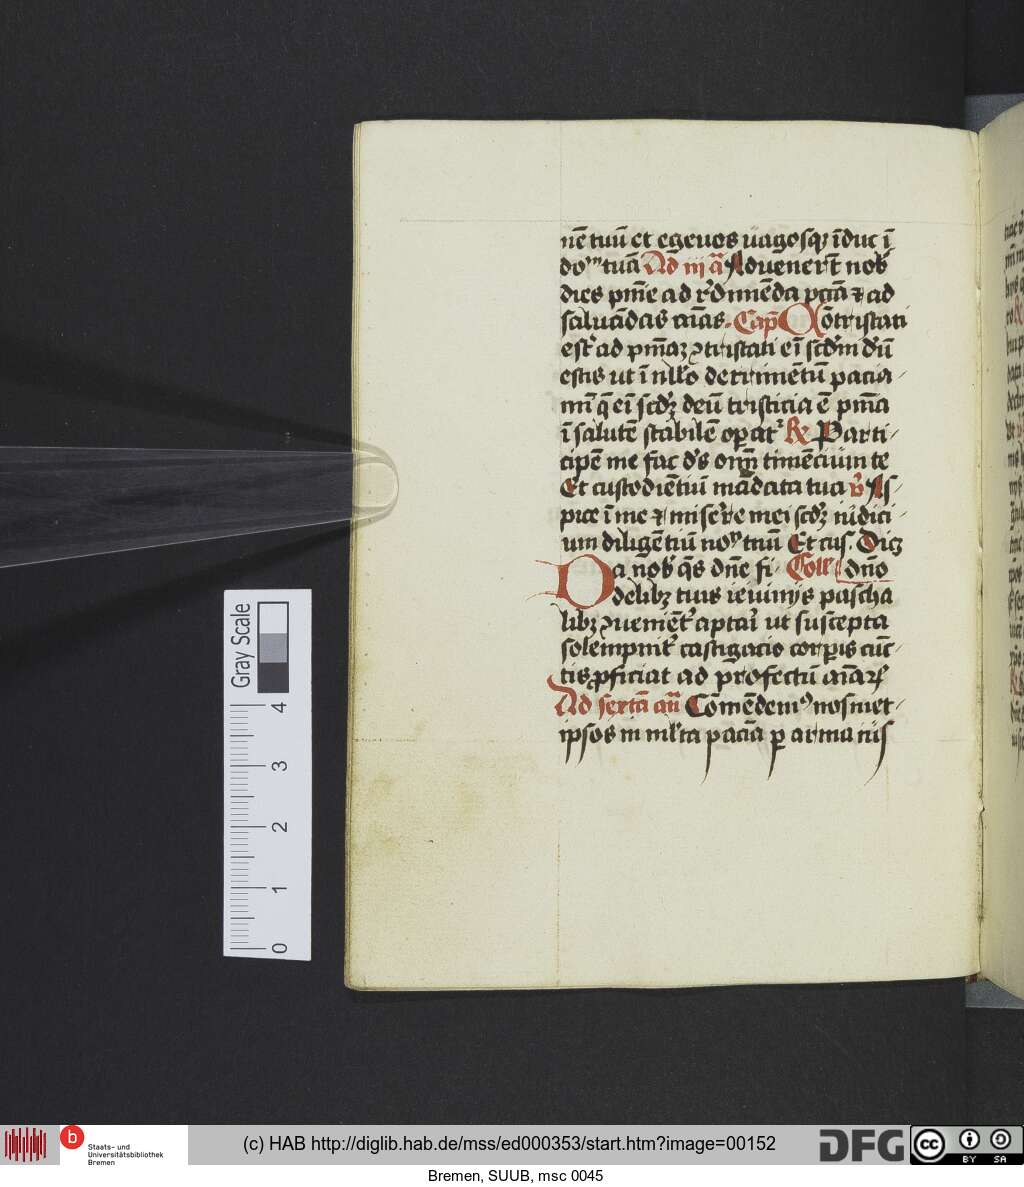 nē tuū et egenos uagosqꝫ īduc ī
doᵐ tuā Ad iij a Aduenerūt nob̄
dies pnīe ad rᵈdimēda pctā ⁊ ad
saluādas aīas. Cap Cōtristati
estꝭ ad pnīaꝫ ꝯtristati eī scd̄m dm̄
estis ut ī nllo detrimētū pacia/
mī q̄ eī scd̄ꝫ deū tristicia ē pnīa
ī salutē stabilē oꝑatꝛ ℟ Parti-
cipē me fac ds om̄ timēcium te
Et custodiētiū mādata tua ℣ As/
pice ī me ⁊ misere mei scd̄ꝫ iudici/
um diligētiū noᵐ tuū Et cus. Dig
Da nob̄ q̄s dn̄e fi Coll dn̄o
delibꝫ tuis ieiunijs pascha
libꝫ ꝯueniēt aptari ut suscepta
solempnitꝭ castigacio corꝑis cūc-
tis ꝓficiat ad profectū aīaꝝ
Ad sextā an̄ Comēdemꝰ nosmet-
ipsos in ml̄ta paciā ꝑ arma ius
Gray Scale
4
3
2
1
0
b Staats- und
Universitätsbibliothek
Bremen
(c) HAB http://diglib.hab.de/mss/ed000353/start.htm?image=00152
DFG
cc BY SA
Bremen, SUUB, msc 0045